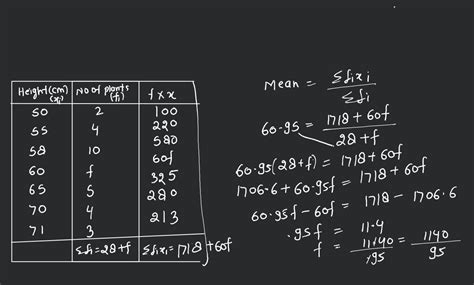 Height(cm) (xi) No of plants (fi) f x x
50 2 100
55 4 220
58 10 580
60 f 60f
65 5 325
70 4 280
71 3 213
Σfi = 28+f Σfixi = 1718+60f
Mean = Σfixi / Σfi
60.95 = 1718 + 60f / 28+f
60.95(28+f) = 1718+60f
1706.6+60.95f = 1718+60f
60.95f - 60f = 1718 - 1706.6
.95f = 11.4
f = 11.40 / .95 = 1140 / 95